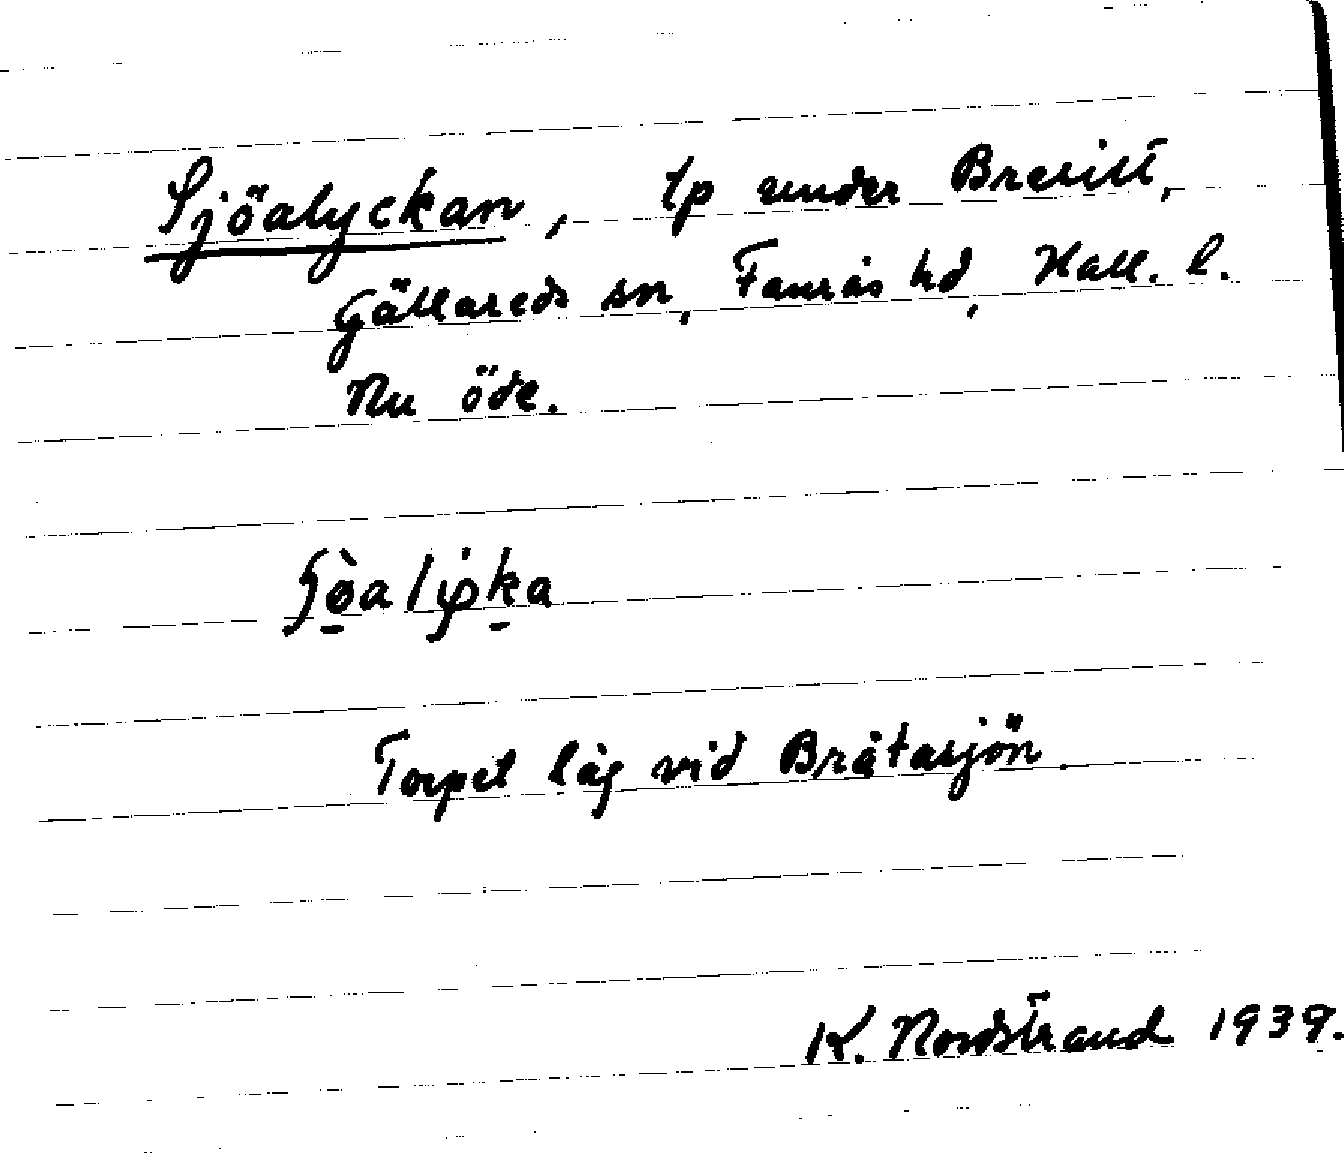 Sjöalyckan, tp under Brevitt,
Gällareds sn, Faurås hd, Hall. l.
Nu öde.
Torpet låg vid Bråtasjön.
K. Nordstrand 1939.